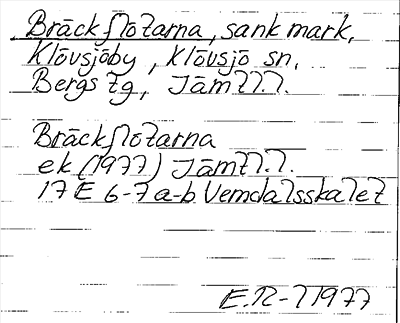 Bräckflötarna, sank mark,
Klövsjöby, Klövsjö sn,
Bergs tg, Jämtl.
Bräckflötarna
ek (1977) Jämtl.
17 E 6-7 a-b Vemdalsskalet
E.R-l 1977